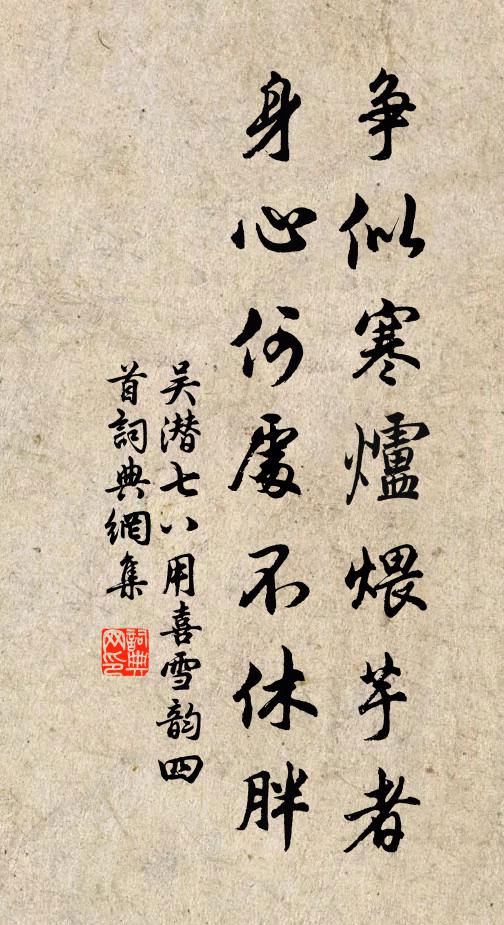 争似寒爐煨芋者
身心何處不休胖
吴潜七八用喜雪韵四
首詞典網集
詞典
网印